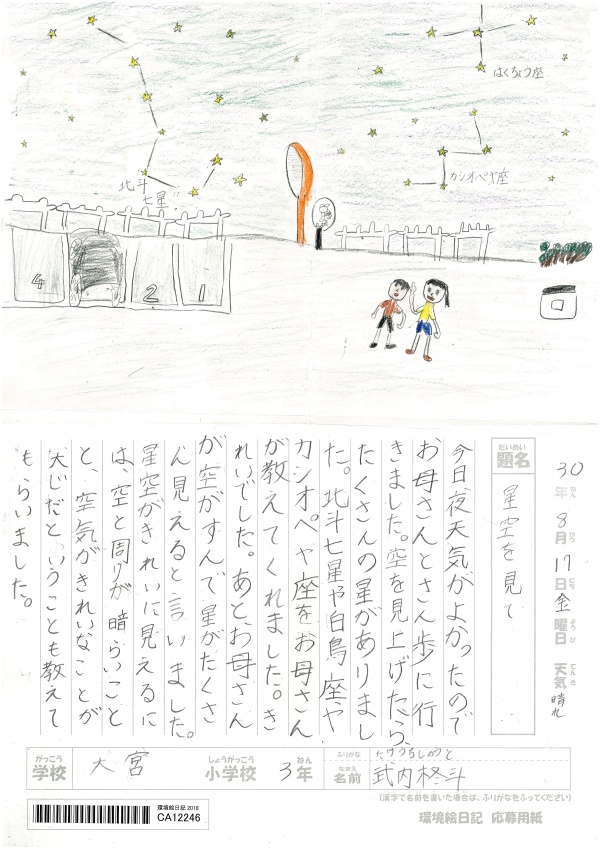 はくちょう座
北斗
七星
カシオペヤ座
4
2
1
30年8月17日金曜日 天気 晴れ
ねん
がつ
にち
ようび
てんき
だいめい
題名
星空を見て
今日夜天気がよかったので
お母さんとさん歩に行
きました。空を見上げたら、
たくさんの星がありまし
た。北斗七星や白鳥座や
カシオペヤ座をお母さん
が教えてくれました。き
れいでした。あとお母さん
が空がすんで星がたくさ
ん見えると言いました。
星空がきれいに見えるに
は、空と周りが暗らいこと
と、空気がきれいなことが
大じだということも教えて
もらいました。
がっこう
学校
大宮
しょうがっこう
小学校
3
ねん
年
ふりがな
たけうちしゅうと
なまえ
名前
武内柊斗
(漢字で名前を書いた場合は、ふりがなをふってください)
環境絵日記2018
CA12246
環境絵日記 応募用紙